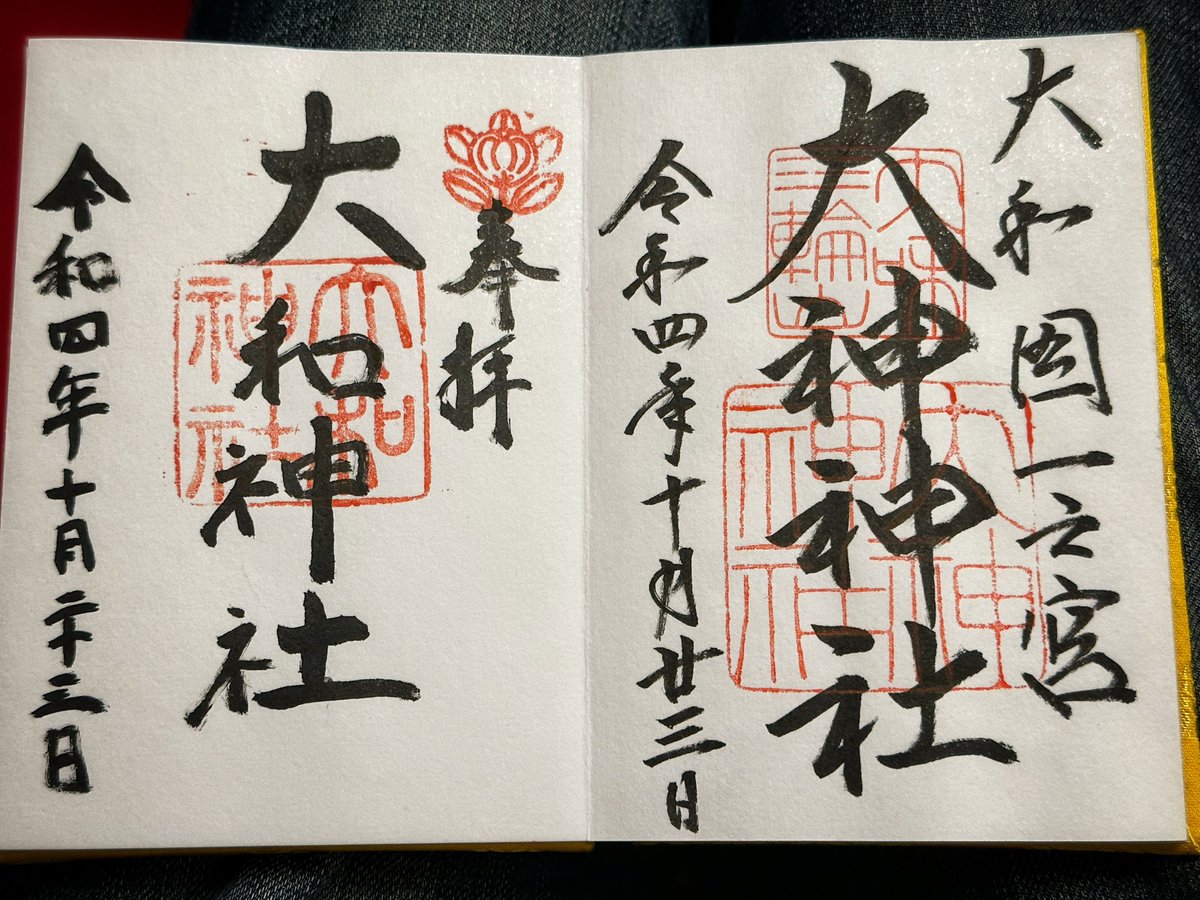 大和国一之宮
大神神社
大神神社
令和四年十月廿三日
奉拝
大和神社
大和神社
令和四年十月二十三日